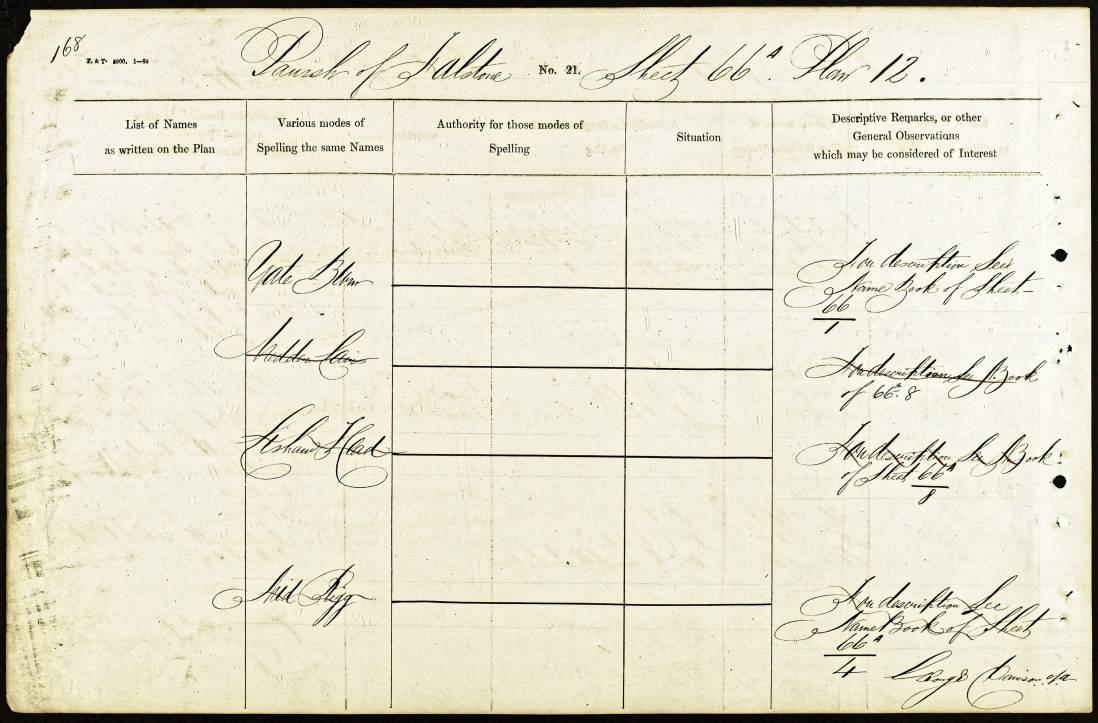 168
Parish of Falstone No. 21. Sheet 66A Plan 12.
List of Names
as written on the Plan
Various modes of
Spelling the same Names
Authority for those modes of
Spelling
Situation
Descriptive Remarks, or other
General Observations
which may be considered of Interest
For description See
Name Book of Sheet
66
1
For description See N. Book
of 66A. 8
Head
For description See N. Book
of Sheet 66A
8
Mid Rigg
For description See
Name Book of Sheet
66A
4